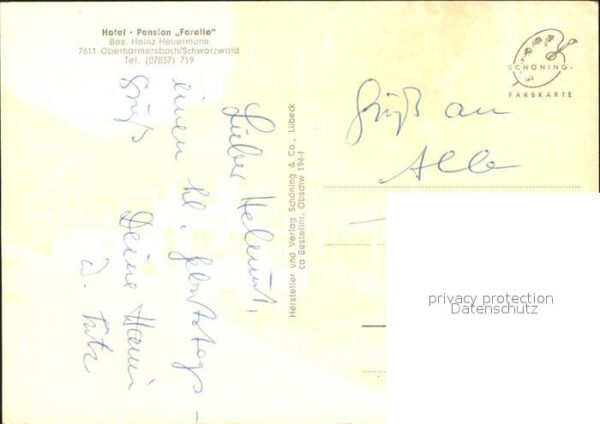 Hotel - Pension „Forelle"
Bes. Heinz Heuermann
7611 Oberharmersbach/Schwarzwald
Tel. (07837) 719
SCHÖNING
FARBKARTE
Lieber Helmut,
einen hl. Geburtstags-
gruß Deine Hanni
u. Fritz
Hersteller und Verlag Schöning & Co., Lübeck
ca Bestellnr. Obschw 194-1
Grüß an
Alle
privacy protection
Datenschutz